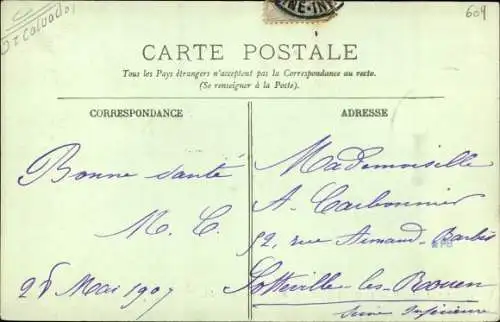 Calvados
604
NE-INF
CARTE POSTALE
Tous les Pays étrangers n'acceptent pas la Correspondance au recto.
(Se renseigner à la Poste).
CORRESPONDANCE
ADRESSE
Bonne Santé
M. C.
28 Mai 1907
Mademoiselle
A. Carbonnier
52, rue Armand-Barbès
Sotteville-les-Rouen
Seine Inférieure